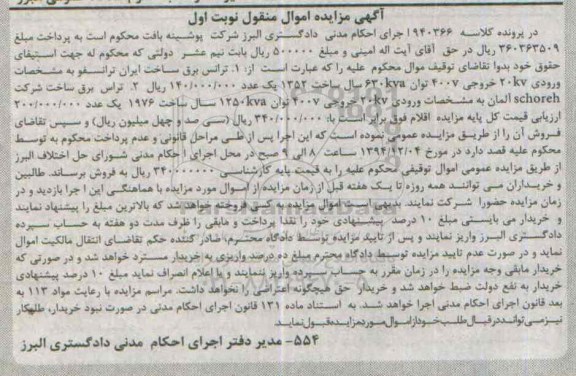 آگهی مزایده اموال منقول نوبت اول
در پرونده کلاسه ۹۴۰۳۶۶ اجرای احکام مدنی دادگستری البرز شرکت پوشینه بافت محکوم است به پرداخت مبلغ
۳۶۰۳۶۳۵۰۹ ریال در حق آقای آیت اله امینی و مبلغ ۵۰۰۰۰۰ ریال بابت نیم عشر دولتی که محکوم له جهت استیفای
حقوق خود بدوا تقاضای توقیف موال محکوم علیه را که عبارت است از: ۱. ترانس برق ساخت ایران ترانسفو به مشخصات
ورودی ۲۰kv خروجی ۴۰۰۷ توان ۶۳۰kva سال ساخت ۱۳۵۲ یک عدد ۱۴۰/۰۰۰/۰۰۰ ریال ۲. تراس برق ساخت شرکت
schoreh آلمان به مشخصات ورودی ۲۰kv خروجی ۴۰۰۷ توان ۱۲۵۰kva سال ساخت ۱۹۷۶ یک عدد ۲۰۰/۰۰۰/۰۰۰
ارزیابی قیمت کل پایه مزایده اقلام فوق برابر است با: ۳۴۰/۰۰۰/۰۰۰ ریال (سی صد و چهل میلیون ریال) و سپس تقاضای
فروش آن را از طریق مزایده عمومی نموده است که این اجرا پس از طی مراحل قانونی و عدم پرداخت محکوم به توسط
محکوم علیه قصد دارد در مورخ ۱۳۹۴/۱۲/۰۴ ساعت ۸ الی ۹ صبح در محل اجرای احکام مدنی شورای حل اختلاف البرز
از طریق مزایده عمومی اموال توقیفی محکوم علیه را به قیمت پایه کارشناسی ۳۴۰۰۰۰۰۰۰ ریال به فروش برساند. طالبین
و خریداران می توانند همه روزه تا یک هفته قبل از زمان مزایده از اموال مورد مزایده با هماهنگی این اجرا بازدید و در
زمان مزایده حضورا شرکت نمایند. بدیهی است اموال مزایده به کسی فروخته خواهد شد که بالاترین مبلغ را پیشنهاد نمایند
و خریدار می بایستی مبلغ ۱۰ درصد پیشنهادی خود را نقدا پرداخت و مابقی را ظرف مدت دو هفته به حساب سپرده
دادگستری البرز واریز نمایند و پس از تایید مزایده توسط دادگاه محترم، صادر کننده حکم تقاضای انتقال مالکیت اموال
نماید و در صورت عدم تایید مزایده توسط دادگاه محترم مبلغ ده درصد واریزی به خریدار مسترد خواهد شد و در صورتی که
خریدار مابقی وجه مزایده را در زمان مقرر به حساب سپرده واریز ننمایند و یا اعلام انصراف نماید مبلغ ۱۰ درصد پیشنهادی
خریدار به نفع دولت ضبط خواهد شد و خریدار حق هیچگونه اعتراضی را نخواهد داشت. مراسم مزایده با رعایت مواد ۱۱۳ به
بعد قانون اجرای احکام مدنی اجرا خواهد شد. به استناد ماده ۱۳۱ قانون اجرای احکام مدنی در صورت نبود خریدار، طلبکار
نیز می تواند در قبال طلب خود از اموال مورد مزایده قبول نماید
۵۵۴- مدیر دفتر اجرای احکام مدنی دادگستری البرز